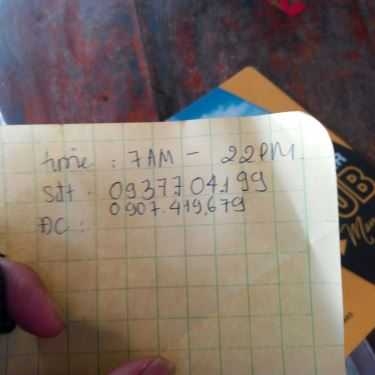 time : 7AM - 22PM
Sđt : 0937704199
0907.419.679
ĐC :
UB